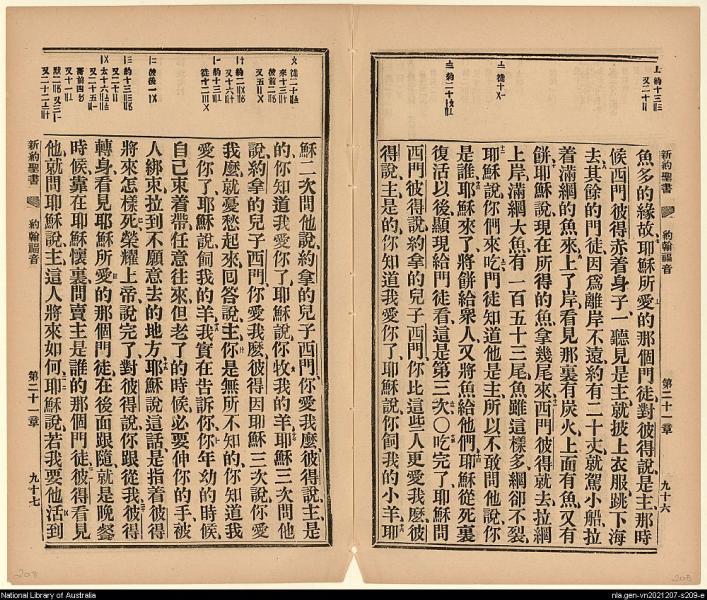 新約聖書 約翰福音 第二十一章 九十六
魚多的緣故耶穌所愛的那個門徒對彼得說是主那時
候西門彼得赤着身子一聽見是主就披上衣服跳下海
去其餘的門徒因爲離岸不遠約有二十丈就駕小船拉
着滿網的魚來上了岸看見那裏有炭火上面有魚又有
餅耶穌說現在所得的魚拿幾尾來西門彼得就去拉網
上岸滿網大魚有一百五十三尾魚雖這樣多網卻不裂
耶穌說你們來吃門徒知道他是主所以不敢問他說你
是誰耶穌來了將餅給衆人又將魚給他們耶穌從死裏
復活以後顯現給門徒看這是第三次〇吃完了耶穌問
西門彼得說約拿的兒子西門你比這些人更愛我麽彼
得說主是的你知道我愛你了耶穌說你餇我的小羊耶
穌二次問他說約拿的兒子西門你愛我麽彼得說主是
的你知道我愛你了耶穌說你牧我的羊耶穌三次問他
說約拿的兒子西門你愛我麽彼得因耶穌三次說你愛
我麽就憂愁起來回答說主你是無所不知的你知道我
愛你了耶穌說餇我的羊我實在告訴你你年幼的時候
自己束着帶任意往來但老了的時候必要伸你的手被
人綁束拉到不願意去的地方耶穌說這話是指着彼得
將來怎樣死榮耀上帝說完了對彼得說你跟從我彼得
轉身看見耶穌所愛的那個門徒在後面跟隨就是晚餐
時候靠在耶穌懷裏問賣主是誰的那個門徒彼得看見
他就問耶穌說主這人將來如何耶穌說若我要他活到
新約聖書 約翰福音 第二十一章 九十七
208
208
National Library of Australia
nla.gen-vn2021207-s209-e